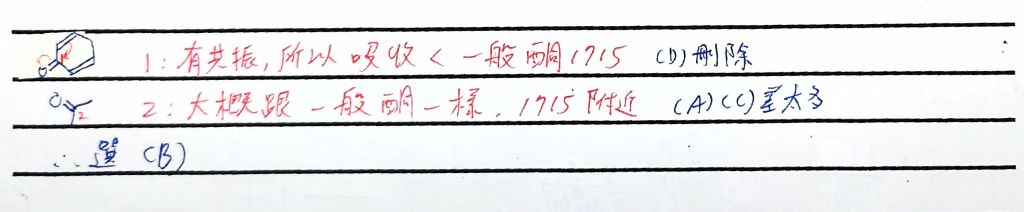 1:有共振,所以吸收<一般酮1715 (D)刪除
O 2 2:大概跟一般酮一樣,1715附近 (A)(C)差太多
∴選 (B)